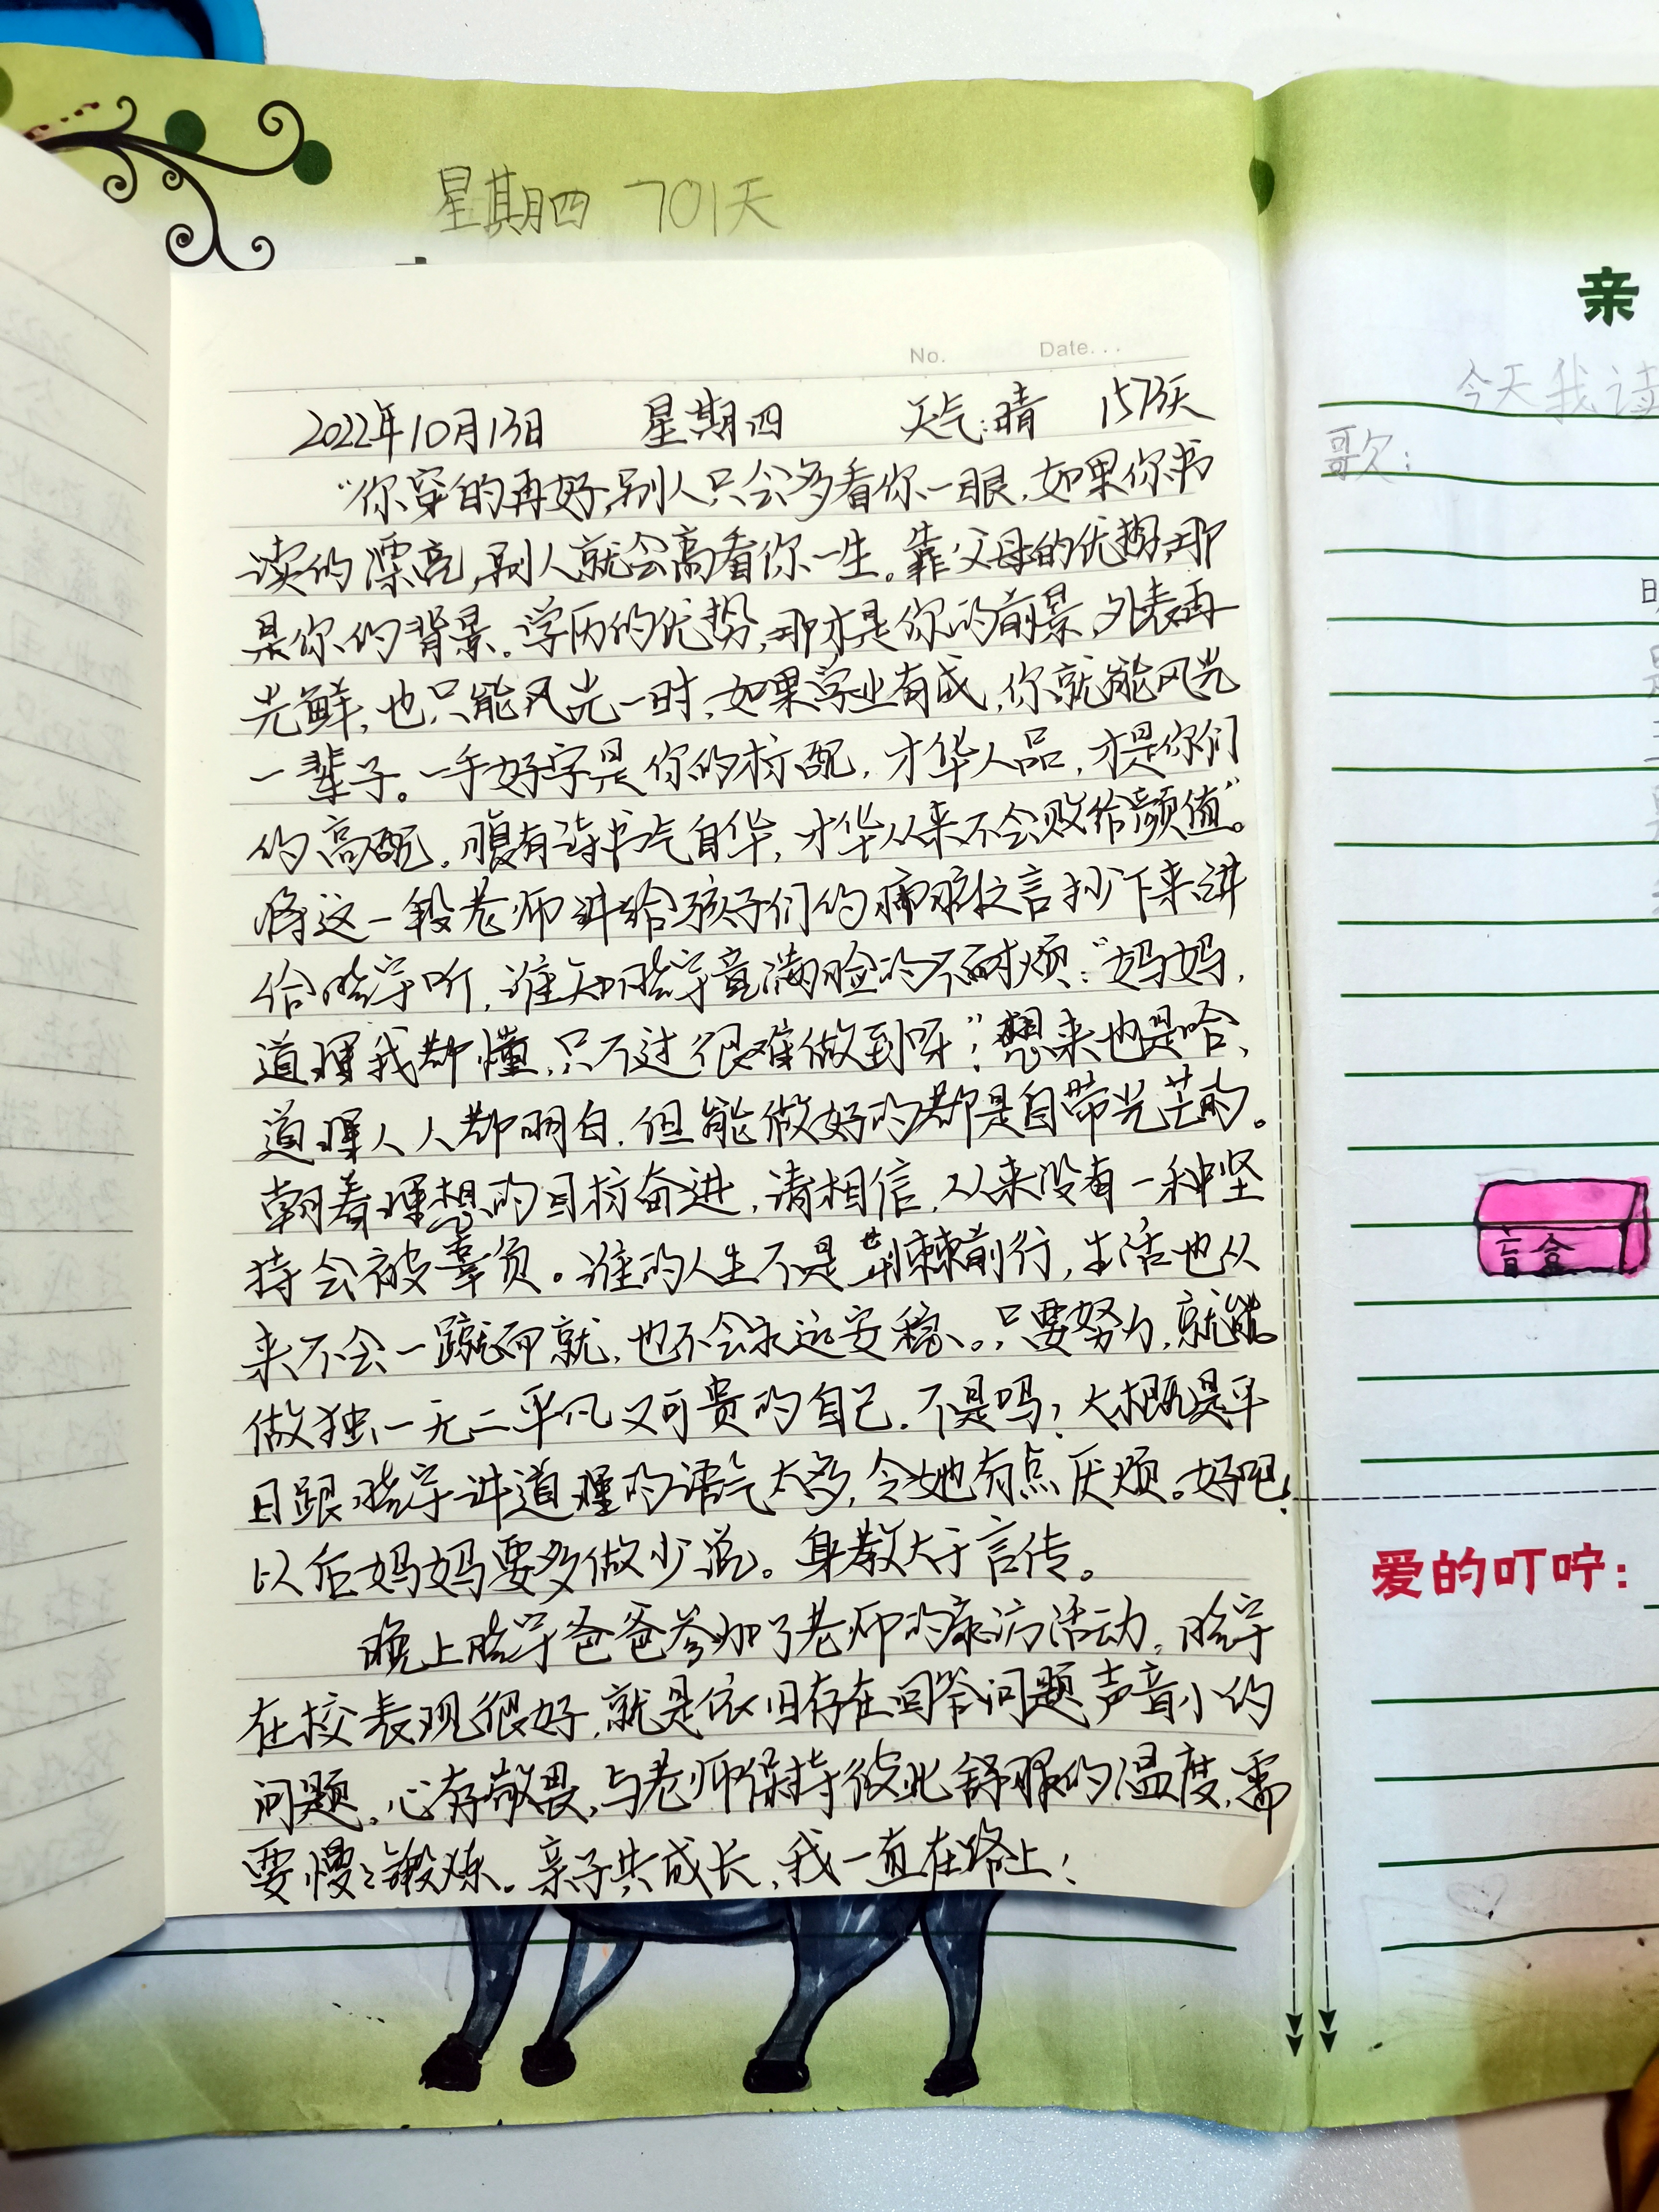 星期四 701天
No. Date...
2022年10月13日 星期四 天气:晴 1573天
“你穿的再好,别人只会多看你一眼,如果你书
读的漂亮,别人就会高看你一生。靠父母的优势,那
是你的背景。学历的优势,那才是你的前景,外表再
光鲜,也只能风光一时,如果学业有成,你就能风光
一辈子。一手好字是你的标配,才华人品,才是你们
的高配,腹有诗书气自华,才华从来不会败给颜值”。
将这一段老师讲给孩子们的肺腑之言抄下来讲
给晓宇听,谁知晓宇竟满脸的不耐烦:“妈妈,
道理我都懂,只不过很难做到呀”!想来也是哈,
道理人人都明白,但能做好的都是自带光芒的。
朝着理想的目标奋进,请相信,从来没有一种坚
持会被辜负。谁的人生不是荆棘前行,生活也从
来不会一蹴而就,也不会永远安稳。只要努力,就能
做独一无二平凡又可贵的自己,不是吗?大概是平
日跟晓宇讲道理的语气太多,令她有点厌烦。好吧!
以后妈妈要多做少说。身教大于言传。
晚上晓宇爸爸参加了老师的家访活动,晓宇
在校表现很好,就是依旧存在回答问题声音小的
问题,心存敬畏,与老师保持彼此舒服的温度,需
要慢慢锻炼。亲子共成长,我一直在路上!
亲
今天我读
歌:
盲盒
爱的叮咛: